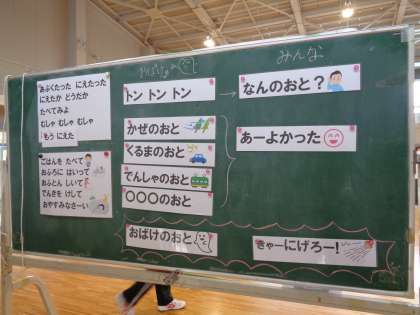 あぶくたった にえたった
にえたか どうだか
たべてみよ
むしゃ むしゃ むしゃ
もう にえた
ごはんを たべて
おふろに はいって
おふとん しいて
でんきを けして
おやすみなさーい
トン トン トン
かぜのおと
くるまのおと
でんしゃのおと
○○○のおと
おばけのおと
みんな
→ なんのおと？
あーよかった
きゃーにげろー!